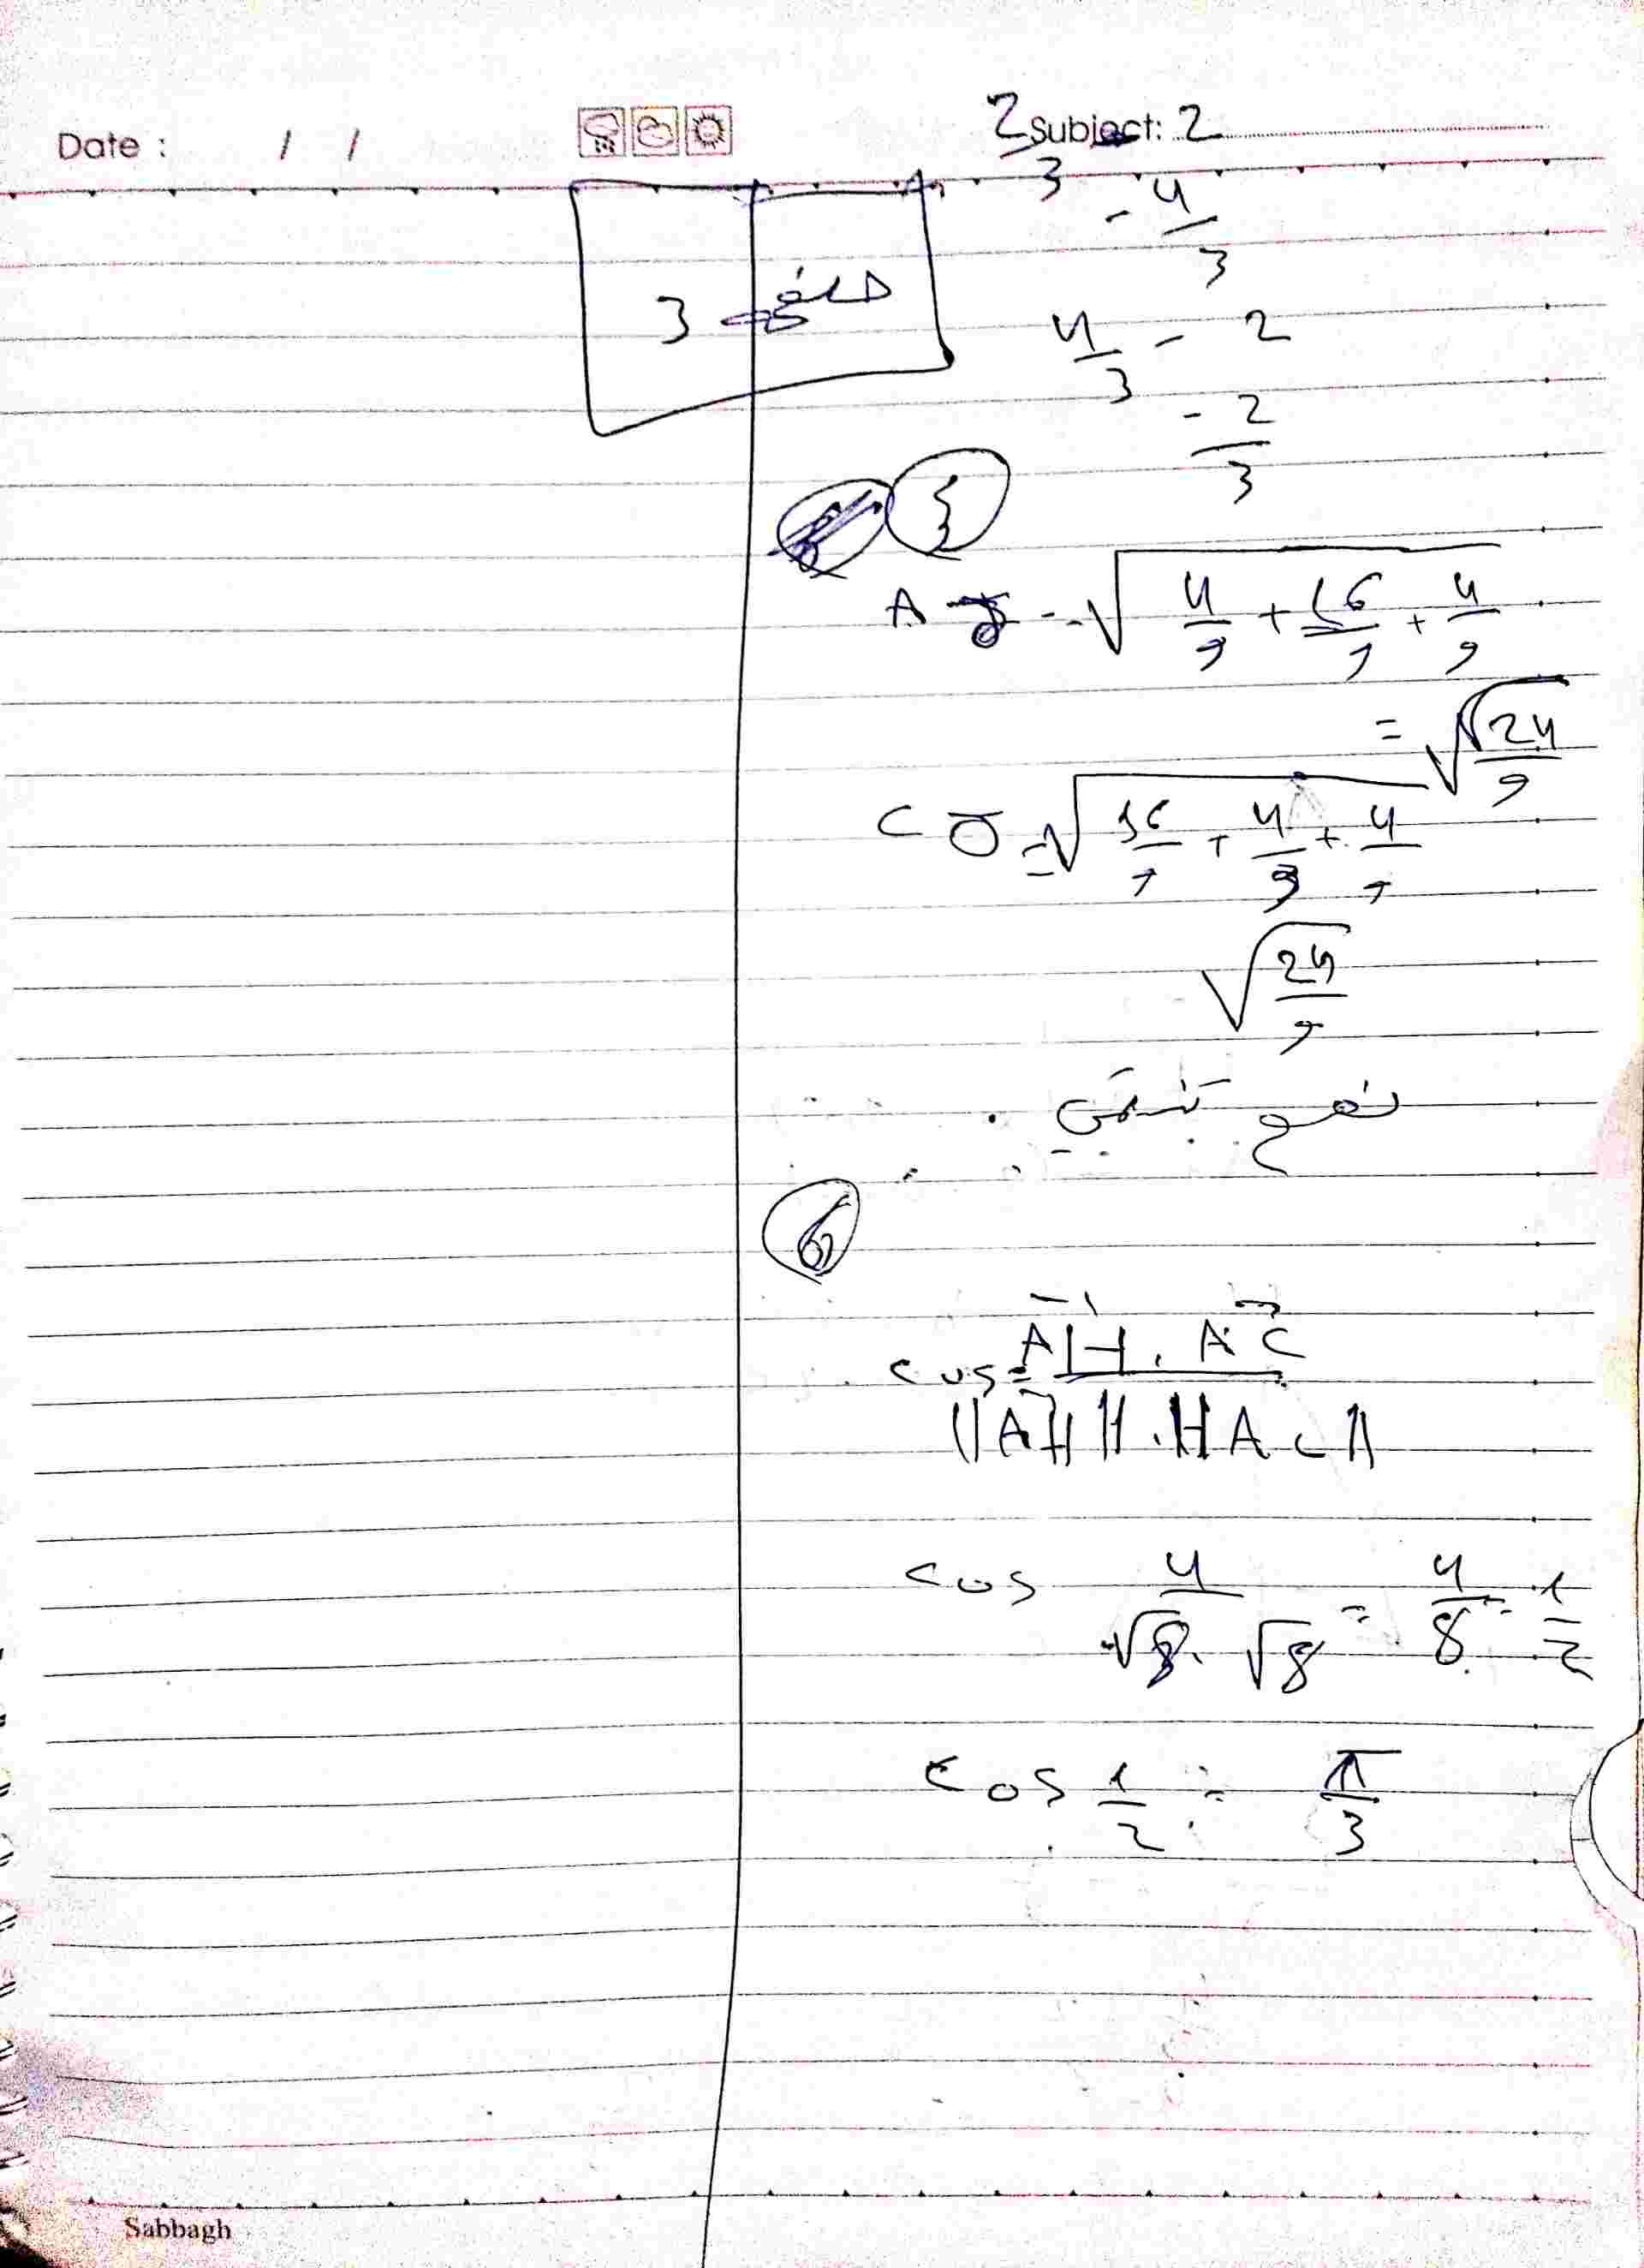 Date : / / Subject: 2
2/3
- 4/3
3
4/3 - 2
- 2/3
A = √(4/9 + 16/9 + 4/9)
= √(24/9)
C = √(16/9 + 4/9 + 4/9)
√(24/9)
نعم تنتمي .
6
cos = AH . AC / ||AH|| . ||AC||
cos 4/(√8 . √8) = 4/8 = 1/2
cos 1/2 = π/3
Sabbagh